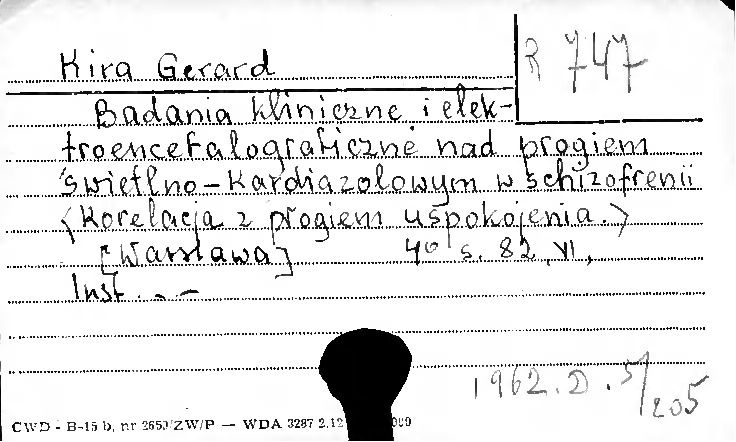 Kira Gerard
R 747
Badania kliniczne i elek-
troencefalograficzne nad progiem
świetlno-kardiazolowym w schizofrenii
(Korelacja z progiem uspokojenia.)
[Warszawa] 4° s. 82, VI,
Inst. . —
1962. D. 5/205
CWD - B-15 b, nr 2650/ZW/P — WDA 3287 2.12